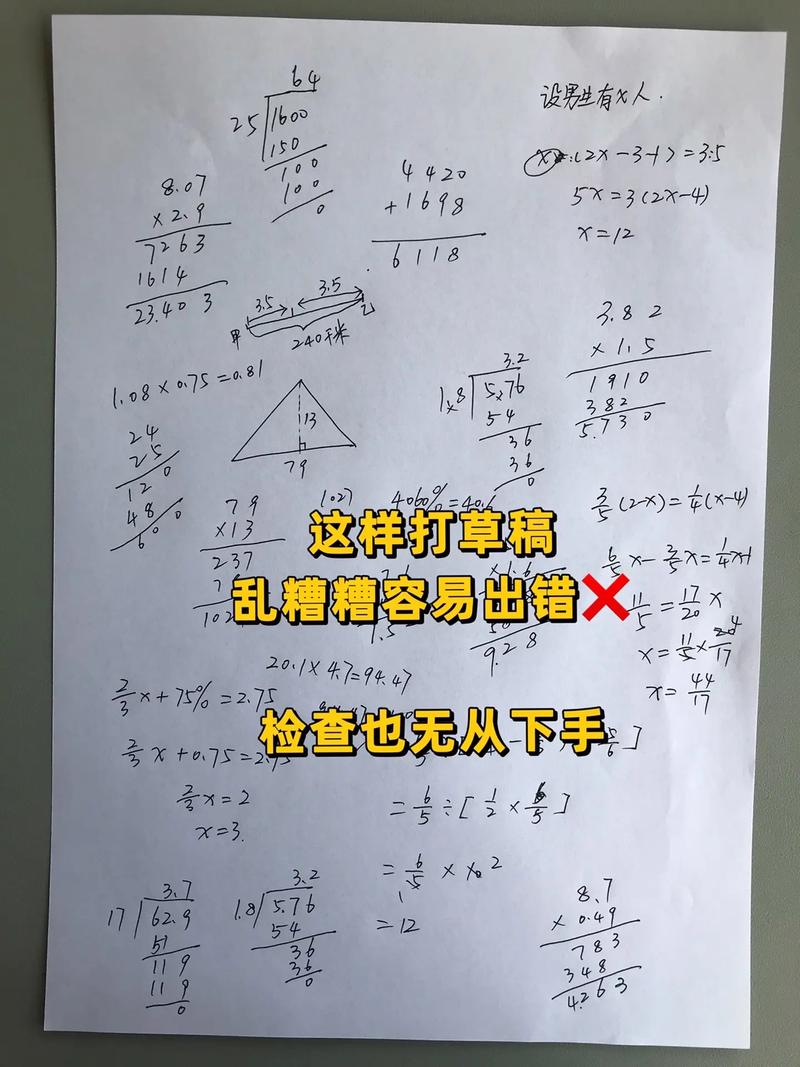 64
25 1600
150
100
100
0
设男生有x人.
x:(2x-3-1)=3:5
5x=3(2x-4)
x=12
8.07
×2.9
7263
1614
23.403
4420
+1698
6118
3.5 3.5
甲 乙
240千米
3.82
×1.5
1910
382
5.730
1.08×0.75=0.81
13
79
3.2
1.8 5.76
54
36
36
0
24
25
120
48
600
79
×13
237
1027
4060%=40.6
3/5(2-x)=1/4(x-4)
6/5x-3/5x=1/4x+1
11/5=17/20x
x=11/5×20/17
4
x=44/17
这样打草稿
乱糟糟容易出错❌
9.28
20.1×4.7=94.47
2/3x+75%=2.75
检查也无从下手
2/3x+0.75=2.75
2/3x=2
x=3.
=6/5÷[1/2×6/5]
=12
3.7
17 62.9
51
119
119
0
3.2
1.8 5.76
54
36
36
0
8.7
×0.49
783
348
4.263